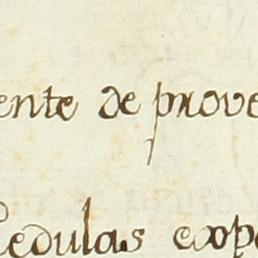 ente de prove
Cedulas expe